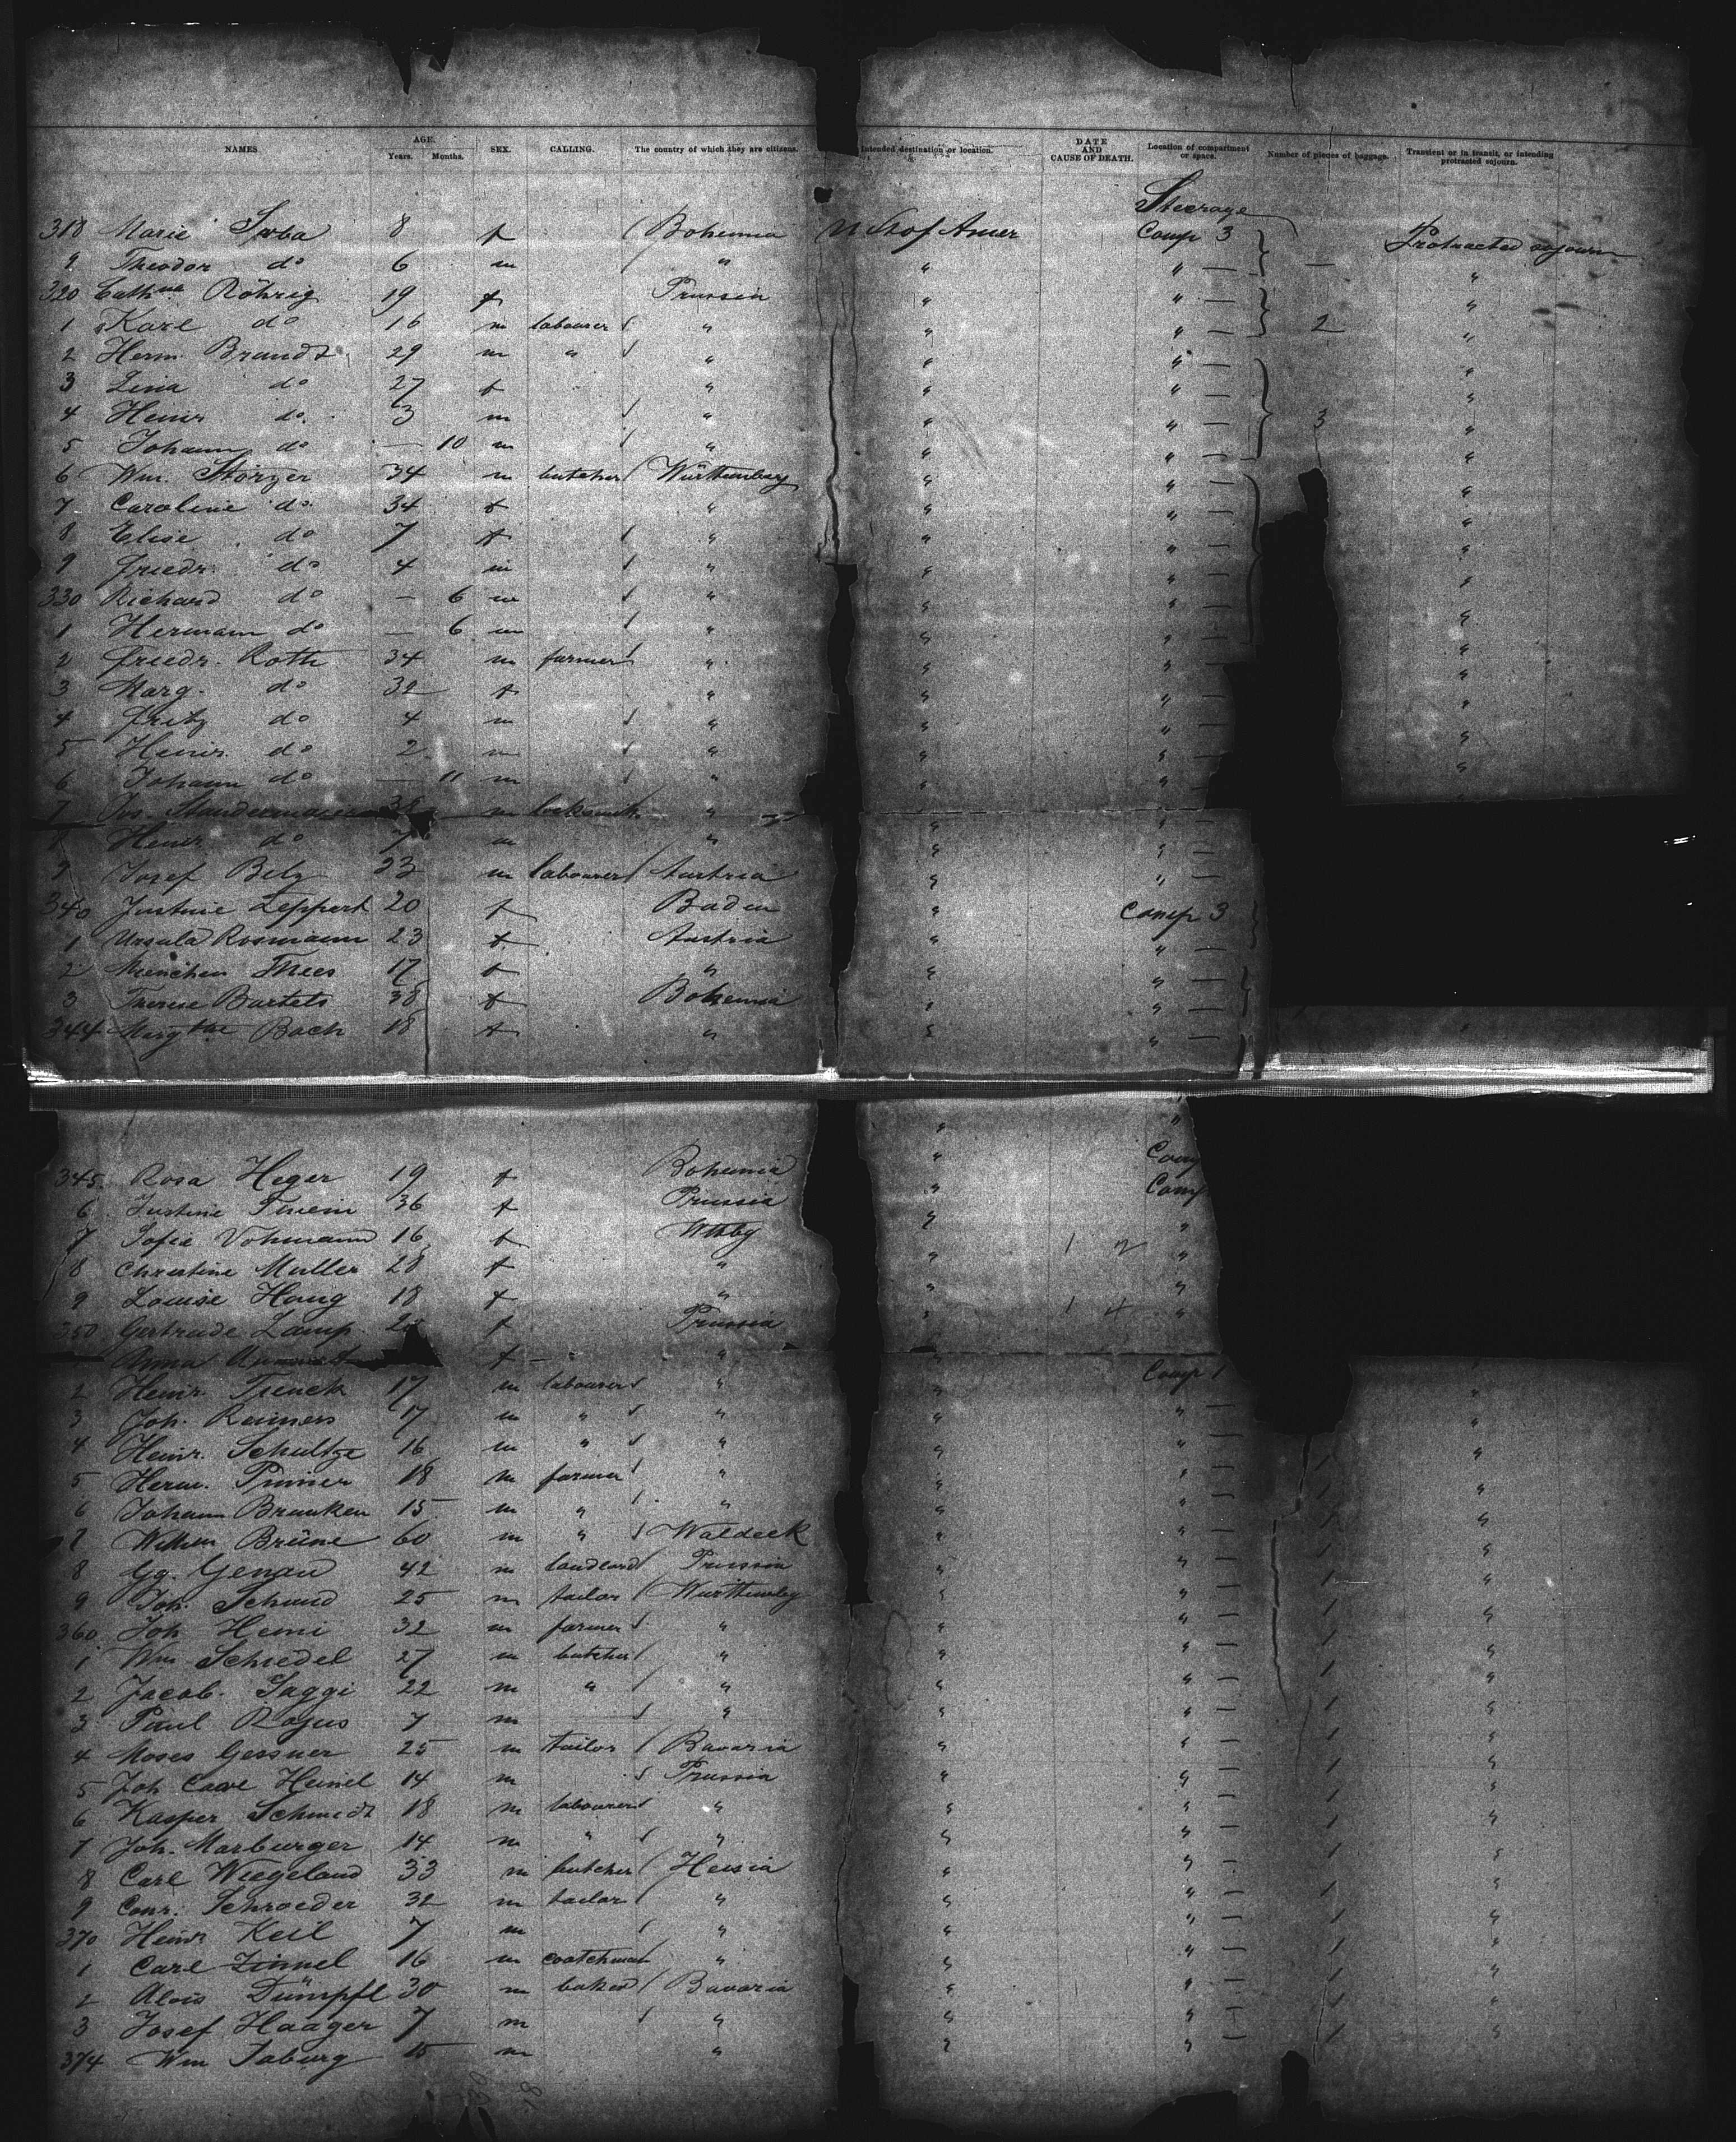 NAMES. AGE. Years. Months. SEX. CALLING. The country of which they are citizens. Intended destination or location. DATE AND CAUSE OF DEATH. Location of compartment or space. Number of pieces of baggage. Transient or in transit, or intending protracted sojourn.
Steerage
318 Marie 8 f Bohemia U St of Amer Comp 3 Protracted sojourn
9 Theodor do 6 m " " " — — "
320 Cath Röhrig 19 f Prussia " " — "
1 Karl do 16 m labourer " " " — 2 "
2 Herm. Brandt 29 m " " " " — "
3 Lina do 27 f " " " — "
4 Heinr do. 3 m " " " — 3 "
5 Johann do — 10 m " " " — "
6 Wm. Störzer 34 m butcher Württemberg " " — "
7 Caroline do. 34 f " " " — "
8 Elise do 7 f " " " — "
9 Friedr. do 4 m " " " — "
330 Richard do — 6 m " " " — "
1 Hermann do — 6 m " " " — "
2 Friedr. Roth 34 m farmer " " " — "
3 Marg. do 32 f " " " — "
4 Fritz do 4 m " " " — "
5 Heinr. do 2 m " " " — "
6 Johann do — 11 m " " " — "
7 m locksmith " " " —
8 Heinr do 7 m " " " —
9 Josef Belz 23 m labourer Austria " " —
340 Justine Leppert 20 f Baden " Comp 3
1 Ursula Rosmann 23 f Austria " " —
2 17 f " " " —
3 Therese Bartels 38 f Bohemia " " —
344 Bach 18 f " " " —
345 Rosa Heger 19 f Bohemia " Comp
6 Justine 36 f Prussia " Comp
7 Sofie Vohmann 16 f Wtbg " "
8 Christine Muller 28 f " " "
9 Louise Haug 18 f " " "
350 Gertrude Lamp f Prussia " "
Anna f — " " "
2 Heinr. Trenck 17 m labourer " " Comp 1 "
3 Joh. Reiners 17 m " " " " — "
4 Heinr. Schultze 16 m " " " " — "
5 Herm. 18 m farmer " " " — 1 "
6 Johann Brunken 15 m " " " " — "
7 Wilhem Brüne 60 m " Waldeck " " — "
8 Gg. Genau 42 m Prussia " " — 1 "
9 Joh. Schmid 25 m tailor Württembg " " — 1 "
360 Joh Henni 32 m farmer " " " — 1 "
1 Wm Schedel 27 m butcher " " " — 1 "
2 Jacob. Saggi 22 m " " " " — 1 "
3 Paul 7 m " " " — 1 "
4 Moses Gessner 25 m tailor Bavaria " " — 1 "
5 Joh Carl Heinel 14 m Prussia " " — 1 "
6 Kasper Schmidt 18 m labourer " " " — 1 "
7 Joh. Marburger 14 m " " " " — 1 "
8 Carl Wiegeland 33 m butcher Hessia " " — 1 "
9 Conr. Schroeder 32 m tailor " " " — 1 "
370 Heinr Keil 7 m " " " — 1 "
1 Carl Zimmel 16 m coatchman " " " — 1 "
2 Alois Dümpfl 30 m baker Bavaria " " — 1 "
3 Josef Haager 7 m " " " — 1 "
374 Wm Saburg 15 m " " "